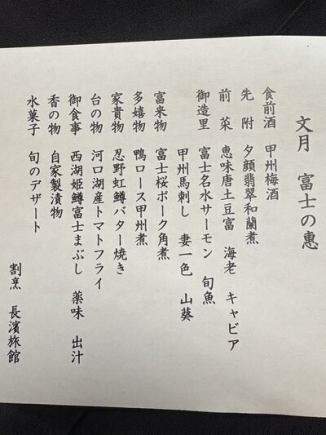 文月　富士の恵
食前酒　甲州梅酒
先附　夕顔翡翠和蘭煮
前菜　恵味唐土豆富　海老　キャビア
御造里　富士名水サーモン　旬魚
甲州馬刺し　妻一色　山葵
富来物　富士桜ポーク角煮
多嬉物　鴨ロース甲州煮
家貴物　忍野虹鱒バター焼き
台の物　河口湖産トマトフライ
御食事　西湖姫鱒富士まぶし　薬味　出汁
香の物　自家製漬物
水菓子　旬のデザート
割烹　長濱旅館